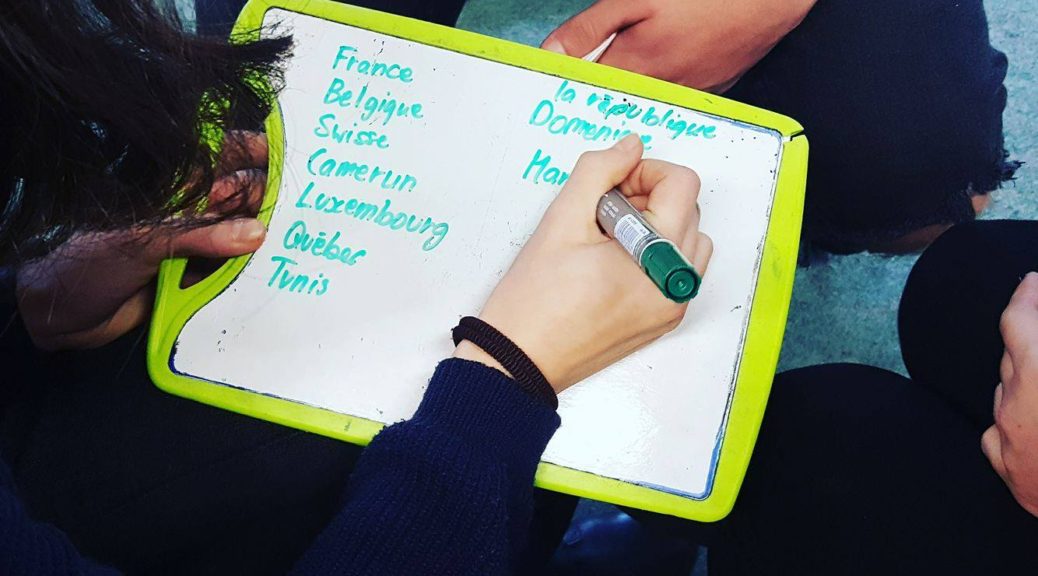 France
Belgique
Suisse
Camerun
Luxembourg
Québec
Tunis
la république
Domenique